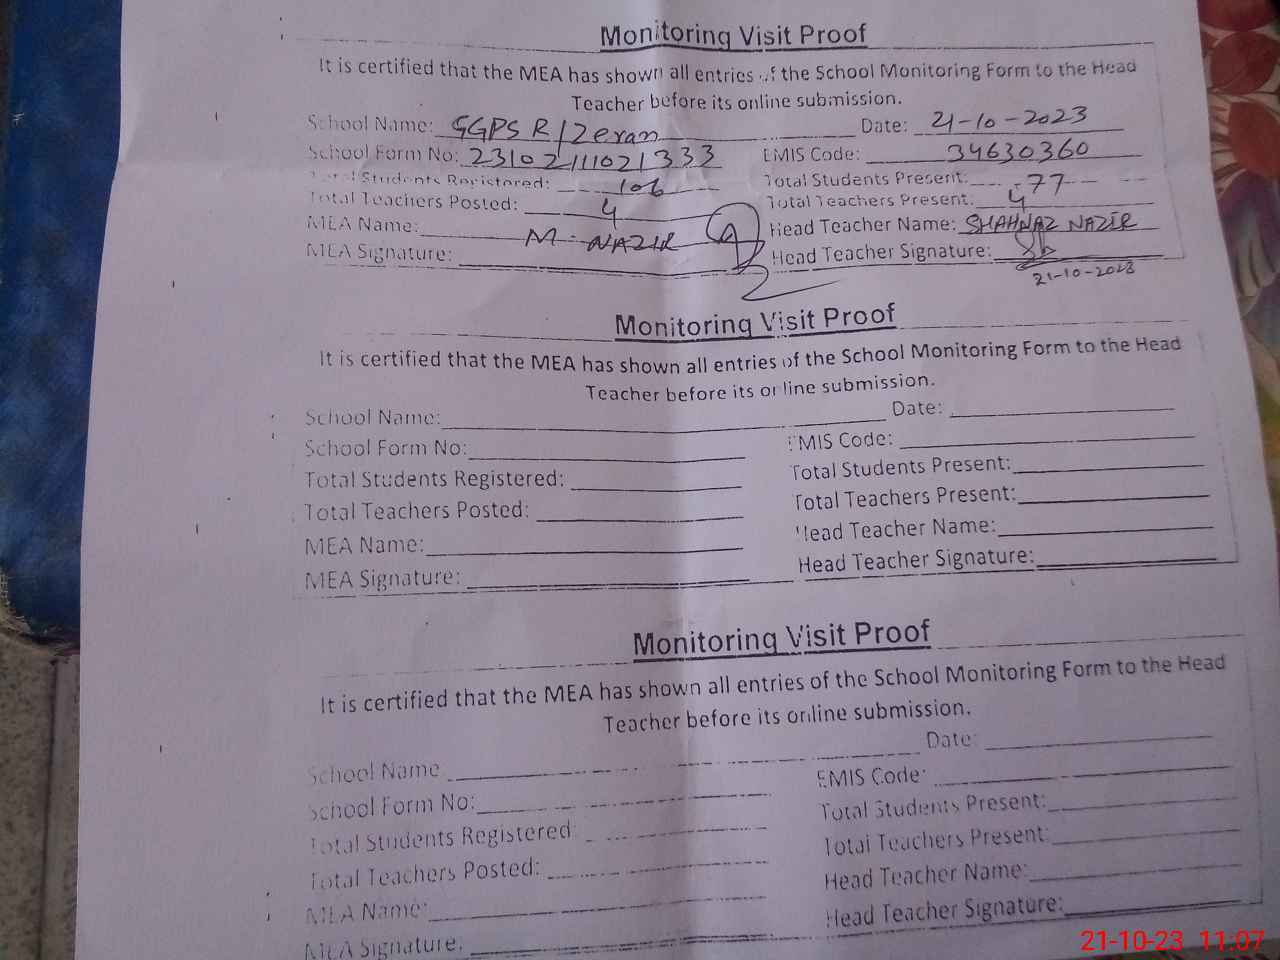 Monitoring Visit Proof
It is certified that the MEA has shown all entries of the School Monitoring Form to the Head
Teacher before its online submission.
School Name: GGPS R/Zeran Date: 21-10-2023
School Form No: 23102111021333 EMIS Code: 34630360
Total Students Registered: 106 Total Students Present: 77
Total Teachers Posted: 4 Total Teachers Present: 4
MEA Name: M. NAZIR Head Teacher Name: SHAHNAZ NAZIR
MEA Signature: Head Teacher Signature:
21-10-2023
Monitoring Visit Proof
It is certified that the MEA has shown all entries of the School Monitoring Form to the Head
Teacher before its online submission.
School Name: Date:
School Form No: EMIS Code:
Total Students Registered: Total Students Present:
Total Teachers Posted: Total Teachers Present:
MEA Name: Head Teacher Name:
MEA Signature: Head Teacher Signature:
Monitoring Visit Proof
It is certified that the MEA has shown all entries of the School Monitoring Form to the Head
Teacher before its online submission.
School Name Date:
School Form No: EMIS Code:
Total Students Registered: Total Students Present:
Total Teachers Posted: Total Teachers Present:
MEA Name: Head Teacher Name:
MEA Signature: Head Teacher Signature:
21-10-23 11:07